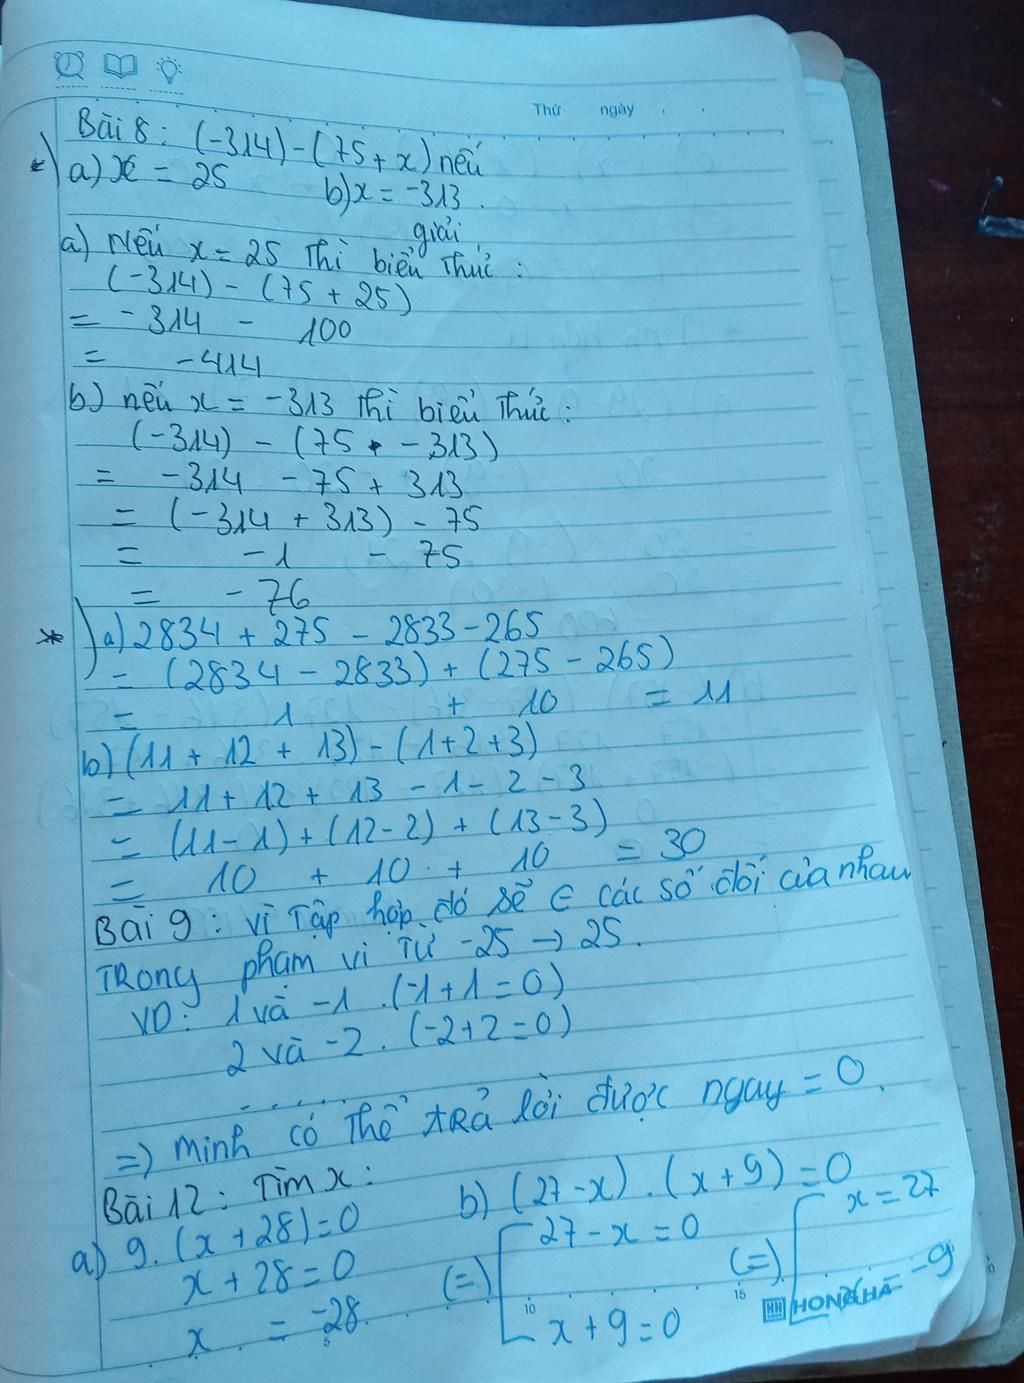 Thứ ngày
Bài 8: (-314) - (75 + x) nếu
*) a) x = 25 b) x = -313.
giải
a) Nếu x = 25 Thì biểu Thức:
(-314) - (75 + 25)
= -314 - 100
= -414
b) nếu x = -313 Thì biểu Thức:
(-314) - (75 + -313)
= -314 - 75 + 313
= (-314 + 313) - 75
= -1 - 75
= -76
*) a) 2834 + 275 - 2833 - 265
= (2834 - 2833) + (275 - 265)
= 1 + 10 = 11
b) (11 + 12 + 13) - (1+2+3)
= 11 + 12 + 13 - 1 - 2 - 3
= (11 - 1) + (12 - 2) + (13 - 3)
= 10 + 10 + 10 = 30
Bài 9: Vì Tập hợp đó sẽ ∈ các số đối của nhau
TRong phạm vi Từ -25 → 25.
VD: 1 và -1. (-1 + 1 = 0)
2 và -2. (-2 + 2 = 0)
.......
=> Minh có Thể tRả lời được ngay = 0.
Bài 12: Tìm x:
a) 9. (x + 28) = 0 b) (27 - x) . (x + 9) = 0
x + 28 = 0 (=) [ 27 - x = 0 (=) [ x = 27
x = -28. x + 9 = 0 x = -9
5 10 15
HH HONG HA